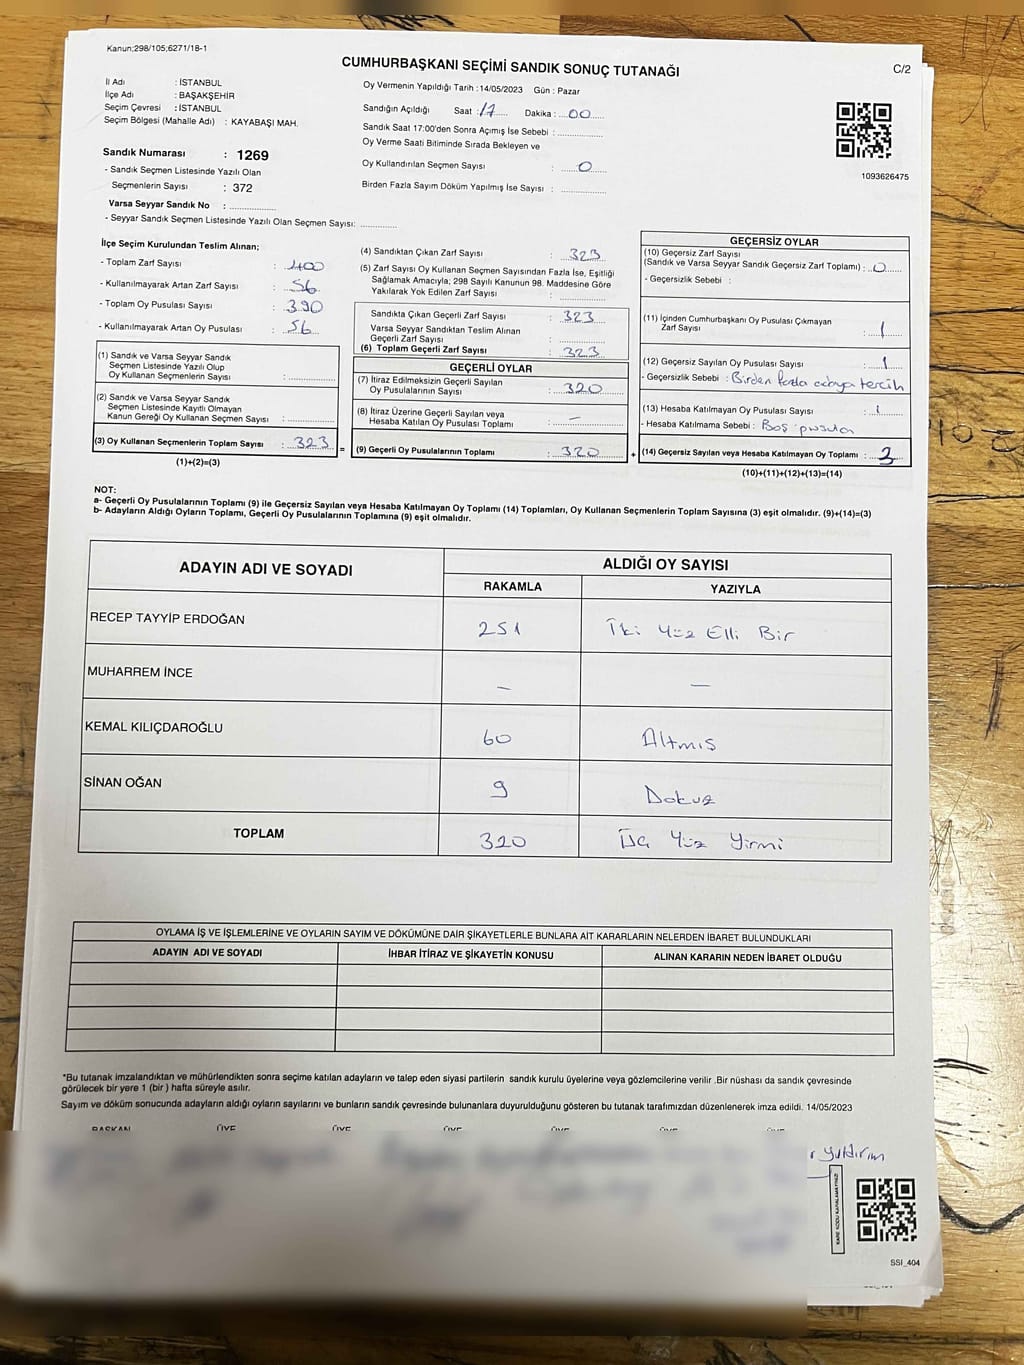 Kanun;298/105;6271/18-1
CUMHURBAŞKANI SEÇİMİ SANDIK SONUÇ TUTANAĞI
C/2
İl Adı : İSTANBUL
İlçe Adı : BAŞAKŞEHİR
Seçim Çevresi : İSTANBUL
Seçim Bölgesi (Mahalle Adı) : KAYABAŞI MAH.
Oy Vermenin Yapıldığı Tarih : 14/05/2023 Gün : Pazar
Sandığın Açıldığı Saat : 17 Dakika : 00
Sandık Saat 17:00'den Sonra Açımış İse Sebebi :
Oy Verme Saati Bitiminde Sırada Bekleyen ve
Oy Kullandırılan Seçmen Sayısı : 0
Birden Fazla Sayım Döküm Yapılmış İse Sayısı :
1093626475
Sandık Numarası : 1269
- Sandık Seçmen Listesinde Yazılı Olan
Seçmenlerin Sayısı : 372
Varsa Seyyar Sandık No :
- Seyyar Sandık Seçmen Listesinde Yazılı Olan Seçmen Sayısı:
İlçe Seçim Kurulundan Teslim Alınan;
- Toplam Zarf Sayısı : 400
- Kullanılmayarak Artan Zarf Sayısı : 56
- Toplam Oy Pusulası Sayısı : 390
- Kullanılmayarak Artan Oy Pusulası : 56
(1) Sandık ve Varsa Seyyar Sandık
Seçmen Listesinde Yazılı Olup
Oy Kullanan Seçmenlerin Sayısı :
(2) Sandık ve Varsa Seyyar Sandık
Seçmen Listesinde Kayıtlı Olmayan
Kanun Gereği Oy Kullanan Seçmen Sayısı :
(3) Oy Kullanan Seçmenlerin Toplam Sayısı : 323 =
(1)+(2)=(3)
(4) Sandıktan Çıkan Zarf Sayısı : 323
(5) Zarf Sayısı Oy Kullanan Seçmen Sayısından Fazla İse, Eşitliği
Sağlamak Amacıyla; 298 Sayılı Kanunun 98. Maddesine Göre
Yakılarak Yok Edilen Zarf Sayısı :
Sandıkta Çıkan Geçerli Zarf Sayısı : 323
Varsa Seyyar Sandıktan Teslim Alınan
Geçerli Zarf Sayısı :
(6) Toplam Geçerli Zarf Sayısı : 323
GEÇERLİ OYLAR
(7) İtiraz Edilmeksizin Geçerli Sayılan
Oy Pusulalarının Sayısı : 320
(8) İtiraz Üzerine Geçerli Sayılan veya
Hesaba Katılan Oy Pusulası Toplamı : –
(9) Geçerli Oy Pusulalarının Toplamı : 320 +
GEÇERSİZ OYLAR
(10) Geçersiz Zarf Sayısı
(Sandık ve Varsa Seyyar Sandık Geçersiz Zarf Toplamı) : 0
- Geçersizlik Sebebi :
(11) İçinden Cumhurbaşkanı Oy Pusulası Çıkmayan
Zarf Sayısı : 1
(12) Geçersiz Sayılan Oy Pusulası Sayısı : 1
- Geçersizlik Sebebi : Birden fazla adaya tercih
(13) Hesaba Katılmayan Oy Pusulası Sayısı : 1
- Hesaba Katılmama Sebebi : Boş pusula
(14) Geçersiz Sayılan veya Hesaba Katılmayan Oy Toplamı : 3
(10)+(11)+(12)+(13)=(14)
NOT:
a- Geçerli Oy Pusulalarının Toplamı (9) ile Geçersiz Sayılan veya Hesaba Katılmayan Oy Toplamı (14) Toplamları, Oy Kullanan Seçmenlerin Toplam Sayısına (3) eşit olmalıdır. (9)+(14)=(3)
b- Adayların Aldığı Oyların Toplamı, Geçerli Oy Pusulalarının Toplamına (9) eşit olmalıdır.
ADAYIN ADI VE SOYADI ALDIĞI OY SAYISI
RAKAMLA YAZIYLA
RECEP TAYYİP ERDOĞAN 251 İki Yüz Elli Bir
MUHARREM İNCE – –
KEMAL KILIÇDAROĞLU 60 Altmış
SİNAN OĞAN 9 Dokuz
TOPLAM 320 Üç Yüz Yirmi
OYLAMA İŞ VE İŞLEMLERİNE VE OYLARIN SAYIM VE DÖKÜMÜNE DAİR ŞİKAYETLERLE BUNLARA AİT KARARLARIN NELERDEN İBARET BULUNDUKLARI
ADAYIN ADI VE SOYADI İHBAR İTİRAZ VE ŞİKAYETİN KONUSU ALINAN KARARIN NEDEN İBARET OLDUĞU
*Bu tutanak imzalandıktan ve mühürlendikten sonra seçime katılan adayların ve talep eden siyasi partilerin sandık kurulu üyelerine veya gözlemcilerine verilir .Bir nüshası da sandık çevresinde
görülecek bir yere 1 (bir ) hafta süreyle asılır.
Sayım ve döküm sonucunda adayların aldığı oyların sayılarını ve bunların sandık çevresinde bulunanlara duyurulduğunu gösteren bu tutanak tarafımızdan düzenlenerek imza edildi. 14/05/2023
BAŞKAN ÜYE ÜYE ÜYE ÜYE ÜYE ÜYE
yıldırım
KARE KODU KARALAMAYINIZ!
SSI_404